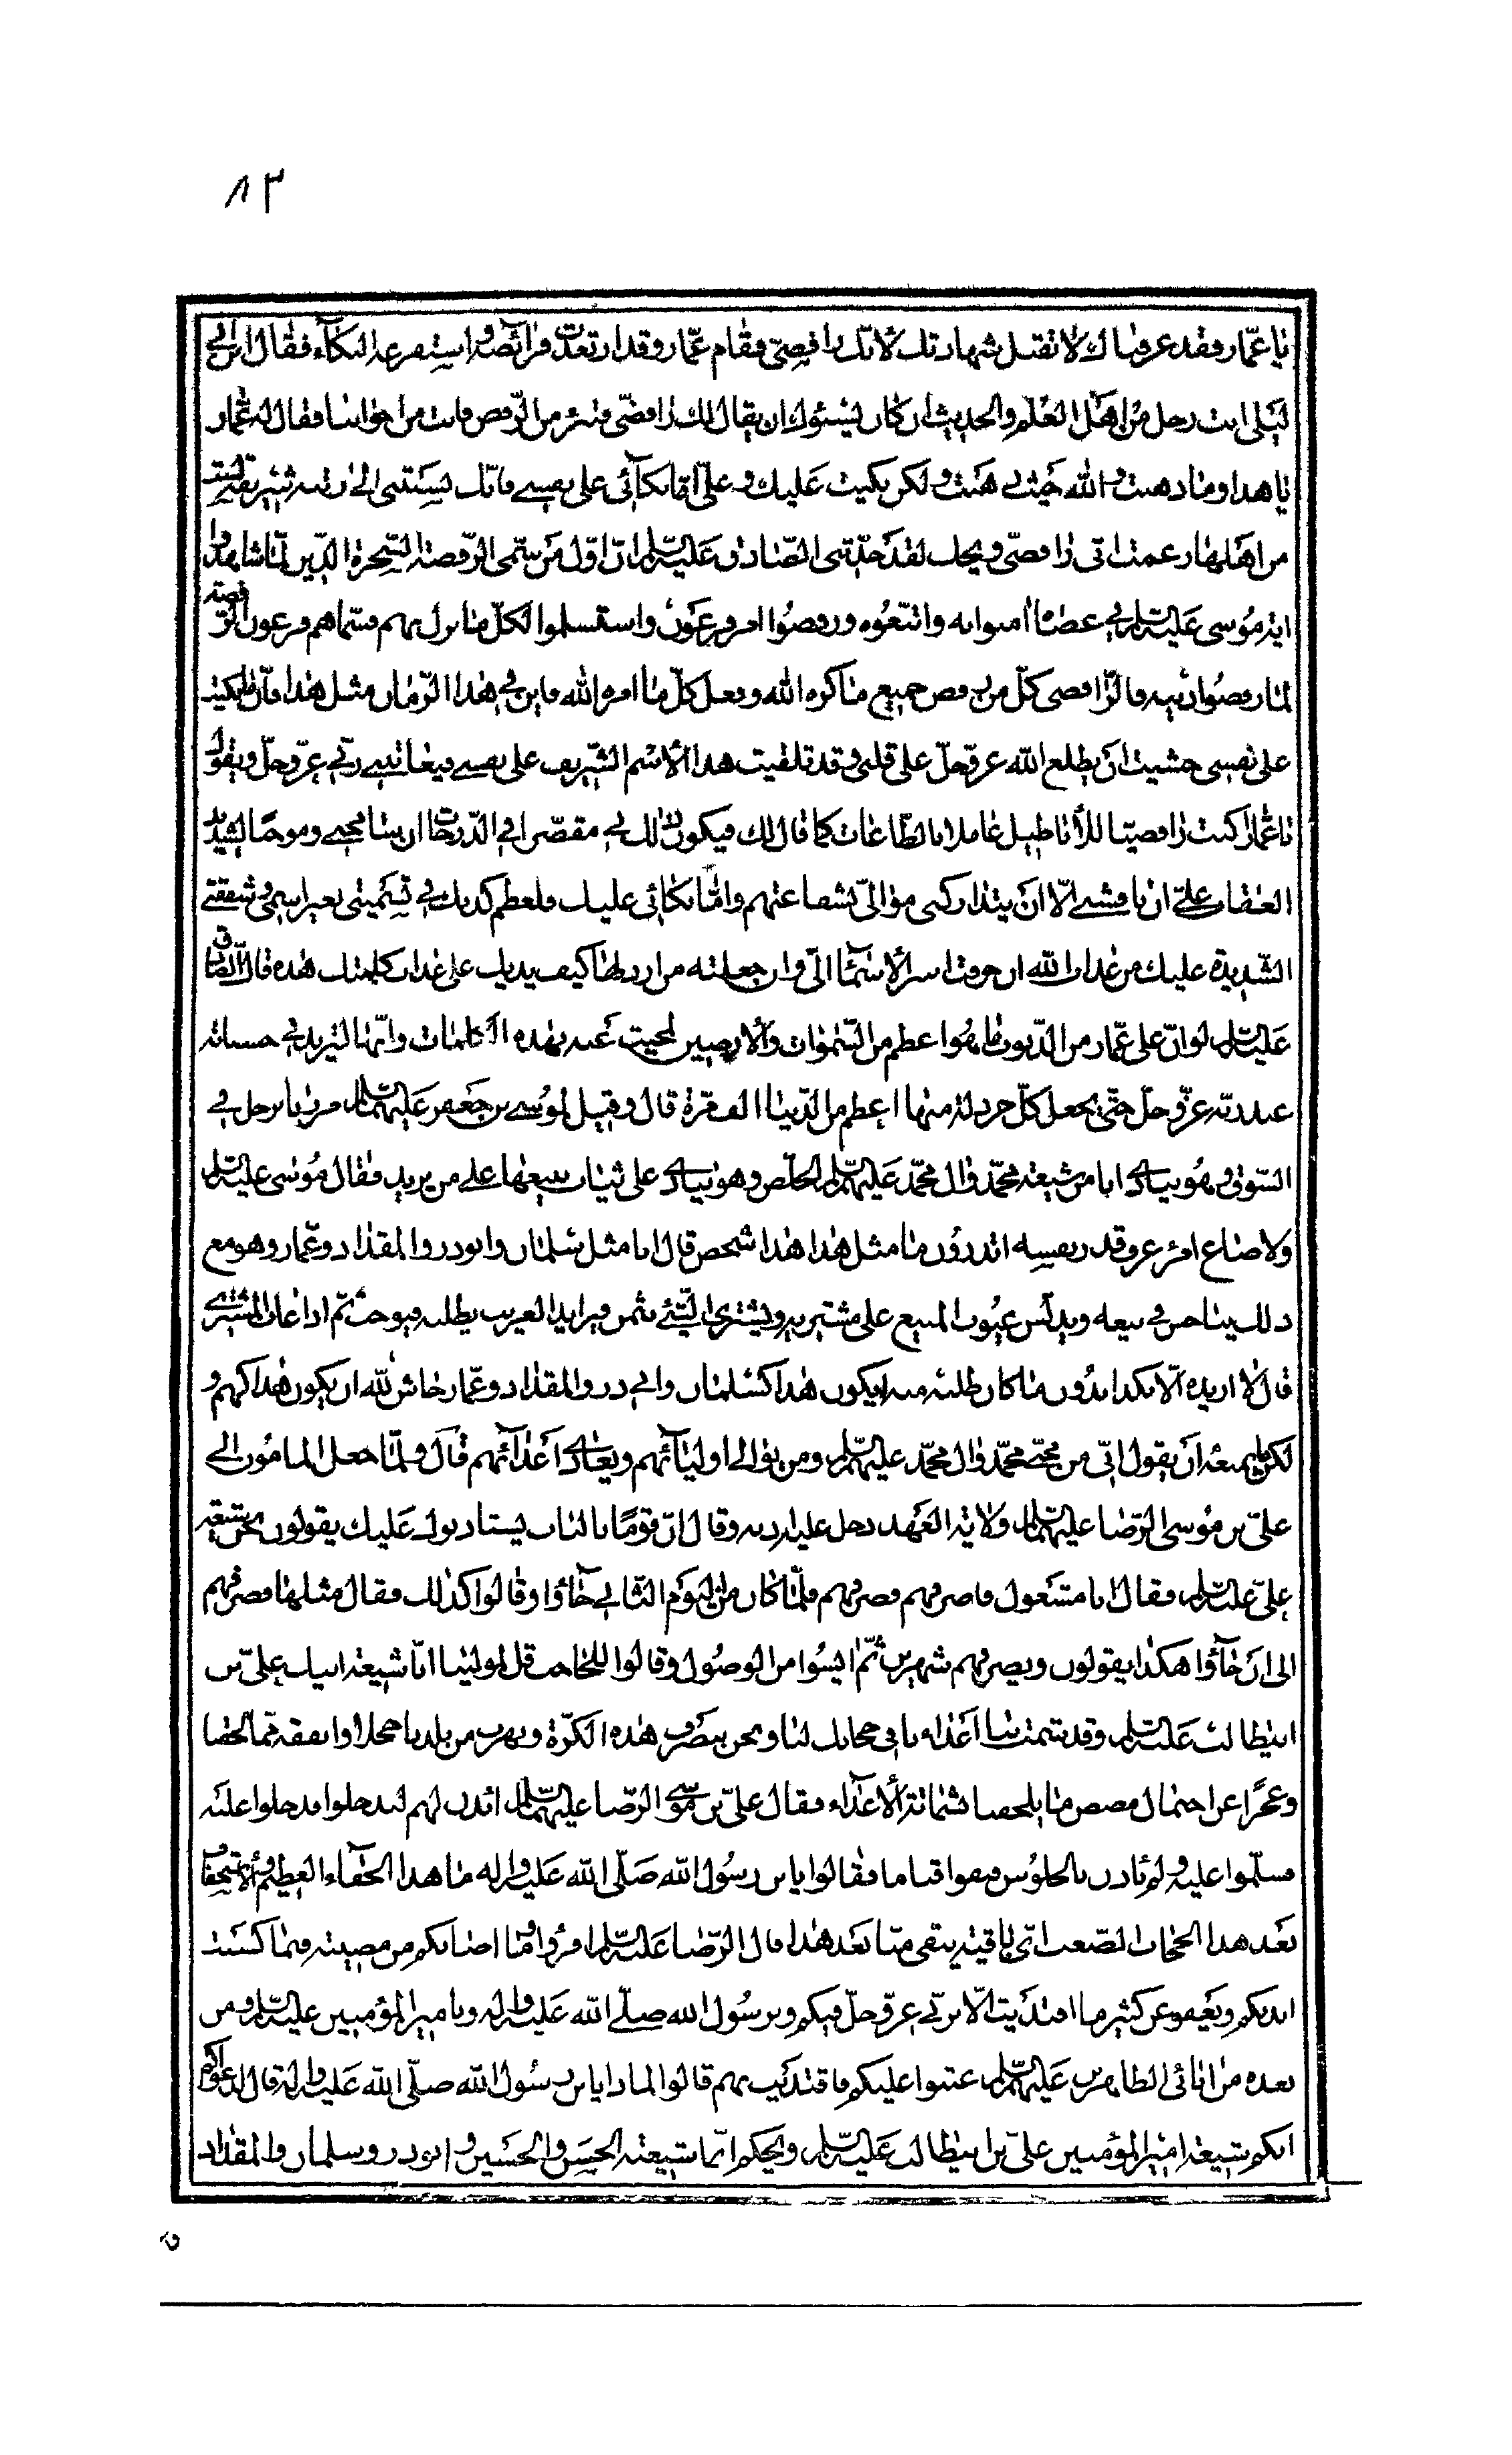 ٨٣
يا عمار فقد عرفناك لا تقبل شهادتك لانك رافضي فقام عمار وقد ارتعدت فرائصه واستفرغه البكاء فقال ابن ابي
ليلى انت رجل من اهل العلم والحديث ان كان ليسوئك ان يقال لك رافضي فتبرء من الرفض فانت من اخواننا فقال له عمار
يا هذا وما ذهبت والله حيث ذهبت ولكن بكيت عليك وعلى اما بكائي على نفسي فانك نسبتني الى رتبه شريفة لست
من اهلها زعمت اني رافضي ويحك لقد حدثني الصادق عليه السلام ان اول من سمى الرفضة السحرة الذين لما شاهدوا
اية موسى عليه السلم في عصاه امنوا به واتبعوه ورفضوا امر فرعون واستسلموا لكل ما نزل بهم فسماهم فرعون الرفضة
لما رفضوا دينه فالرافضي كل من رفض جميع ما كره الله وفعل كل ما امره الله فاين في هذا الزمان مثل هذا فانما بكيت
على نفسي خشيت ان يطلع الله عز وجل على قلبي وقد تلقيت هذا الاسم الشريف على نفسي فيعاتبني ربي عز وجل ويقول
يا عمار اكنت رافضيا للأباطيل عاملا بالطاعات كما قال لك فيكون ذلك بي مقصرا في الدرجات ان سامحني وموجبا لشديد
العقاب علي ان ناقشني الا ان يتداركني موالي بشفاعتهم واما بكائي عليك فلعظم كذبك في تسميتي بغير اسمي وشفقتي
الشديدة عليك من عذاب الله ان صرفت اشرف الاسماء الي وان جعلته من ارذلها كيف يصبر بدنك على عذاب كلمتك هذه فقال الصادق
عليه السلم لو ان على عمار من الذنوب ما هو اعظم من السموات والارضين لمحيت عنه بهذه الكلمات وانها لتزيد في حسناته
عند ربه عز وجل حتى يجعل كل خردلة منها اعظم من الدنيا الف مرة قال وقيل لموسى بن جعفر عليهما السلم مررنا برجل في
السوق وهو ينادي انا من شيعة محمد وال محمد عليهم السلم الخلص وهو ينادي على ثياب يبيعها على من يزيد فقال موسى عليه السلم
ولا ضاع امرء عرف قدر نفسه اتدرون ما مثل هذا هذا شخص قال انا مثل سلمان وابوذر والمقداد وعمار وهو مع
ذلك يباخس في بيعه ويدلس عيوب المبيع على مشتريه ويشتري الشيء بثمن فيزايد الغريب يطلبه فيوجب ثم اذا غاب المشتري
قال لا اريده الا بكذا بدون ما كان طلبه منه ايكون هذا كسلمان وابي ذر والمقداد وعمار حاش لله ان يكون هذا كهم و
لكن ما يمنعه ان يقول اني من محبي محمد وال محمد عليهم السلم ومن يوالي اوليائهم ويعادي اعدائهم قال ولما جعل المامون الى
علي بن موسى الرضا عليهما السلم ولاية العهد دخل عليه اذنه وقال ان قوما بالباب يستاذنون عليك يقولون نحن شيعة
علي عليه السلم فقال انا مشغول فاصرفهم فصرفهم فلما كان من اليوم الثاني جاؤا وقالوا كذلك فقال مثلها فصرفهم
الى ان جاؤا هكذا يقولون ويصرفهم شهرين ثم ايسوا من الوصول وقالوا للحاجب قل لمولينا انا شيعة ابيك علي بن
ابيطالب عليه السلم وقد شمت بنا اعداؤنا في حجابك لنا ونحن ننصرف هذه الكرة ونهرب من بلدنا خجلا وانفة مما لحقنا
وعجزا عن احتمال مضض ما يلحقنا بشماتة الاعداء فقال علي بن موسى الرضا عليهما السلم ائذن لهم ليدخلوا فدخلوا عليه
فسلموا عليه ولم ياذن بالجلوس فبقوا قياما فقالوا يابن رسول الله صلى الله عليه واله ما هذا الجفاء العظيم والاستخفاف
بعد هذا الحجاب الصعب اي باقية يبقى منا بعد هذا قال الرضا عليه السلم اقرؤا ما اصابكم من مصيبة فبما كسبت
ايديكم ويعفو عن كثير ما اقتديت الا بربي عز وجل فيكم وبرسول الله صلى الله عليه واله وبامير المؤمنين عليه السلم ومن
بعده من ابائي الطاهرين عليهم السلم عتبوا عليكم فاقتديت بهم قالوا لماذا يابن رسول الله صلى الله عليه واله قال لدعواكم
انكم شيعة امير المؤمنين علي بن ابيطالب عليه السلم ويحكم انما شيعته الحسن والحسين وابوذر وسلمان والمقداد